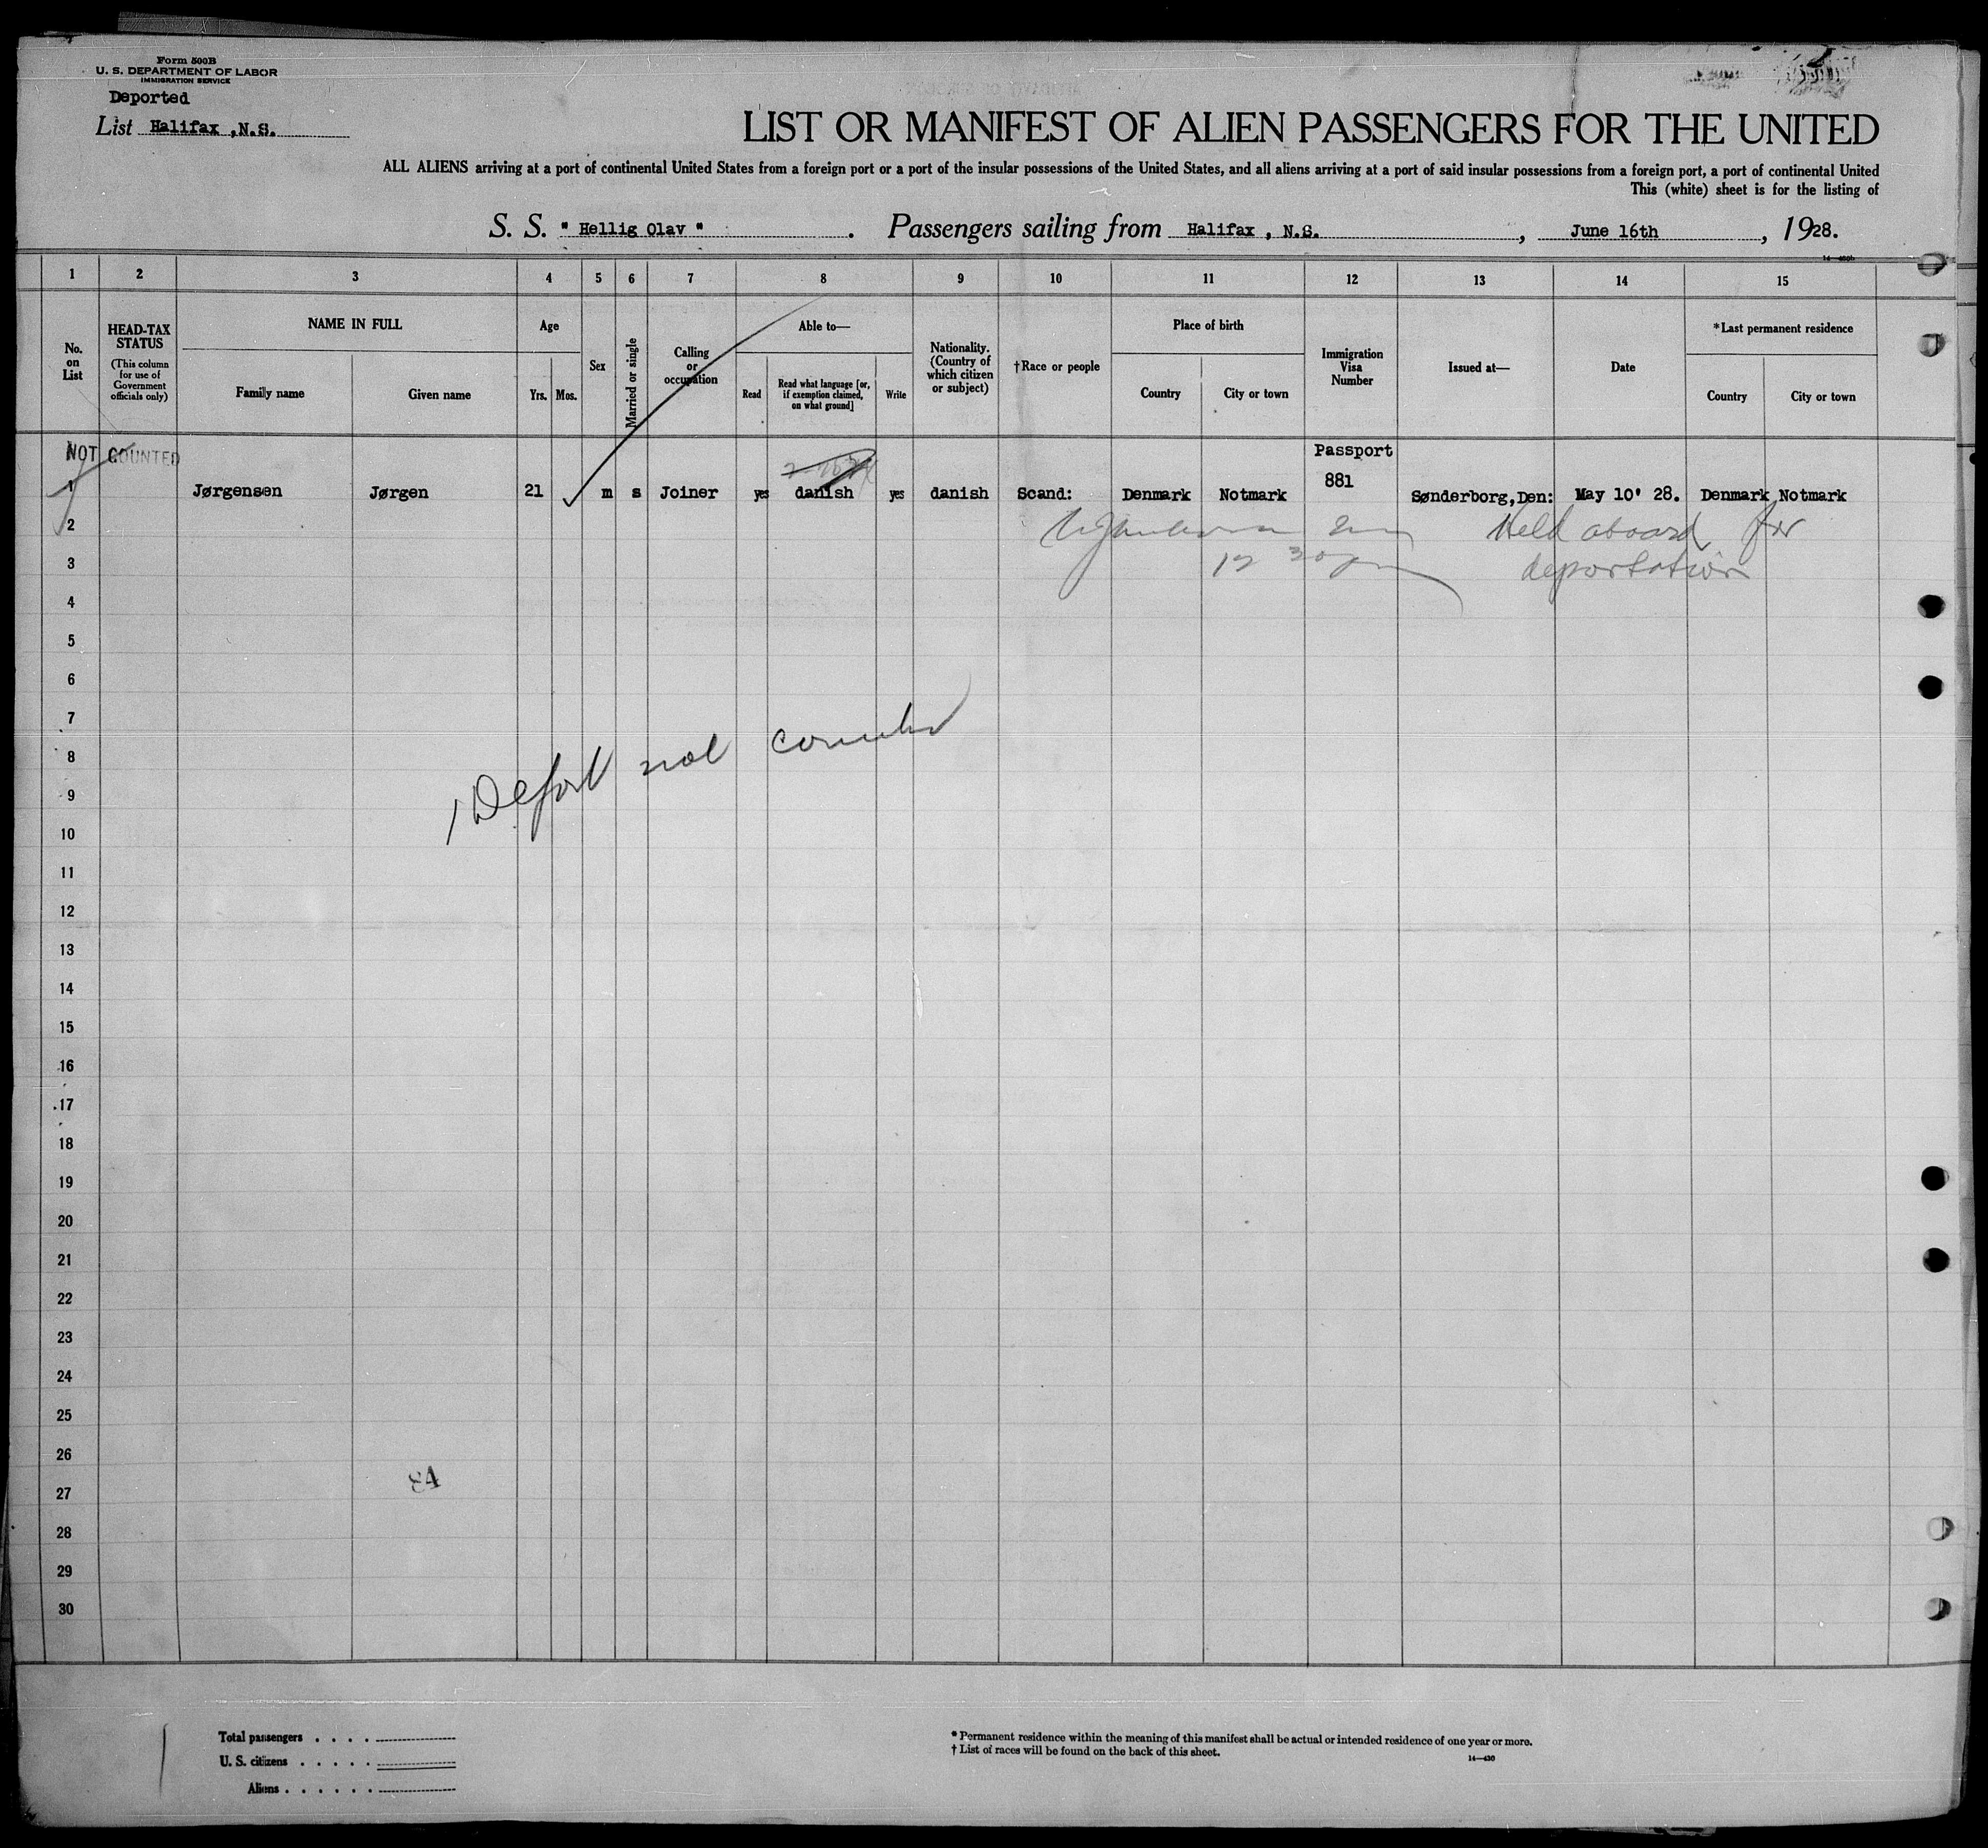 Form 500B
U. S. DEPARTMENT OF LABOR
IMMIGRATION SERVICE
Deported
List Halifax ,N.S.
LIST OR MANIFEST OF ALIEN PASSENGERS FOR THE UNITED
ALL ALIENS arriving at a port of continental United States from a foreign port or a port of the insular possessions of the United States, and all aliens arriving at a port of said insular possessions from a foreign port, a port of continental United
This (white) sheet is for the listing of
S. S. " Hellig Olav " . Passengers sailing from Halifax , N.S. , June 16th , 1928.
1 2 3 4 5 6 7 8 9 10 11 12 13 14 15
No. on List
HEAD-TAX STATUS
(This column for use of Government officials only)
NAME IN FULL
Family name
Given name
Age
Yrs.
Mos.
Sex
Married or single
Calling or occupation
Able to—
Read
Read what language [or, if exemption claimed, on what ground]
Write
Nationality. (Country of which citizen or subject)
†Race or people
Place of birth
Country
City or town
Immigration Visa Number
Issued at—
Date
*Last permanent residence
Country
City or town
NOT COUNTED
Passport
1 Jørgensen Jørgen 21 m s Joiner yes danish yes danish Scand: Denmark Notmark 881 Sønderborg,Den: May 10' 28. Denmark Notmark
2 Held aboard for
3 12 30 pm deportation
4
5
6
7
1 Deport not counted
8
9
10
11
12
13
14
15
16
17
18
19
20
21
22
23
24
25
26
84
27
28
29
30
Total passengers . . . .
U. S. citizens . . . . .
Aliens . . . . . .
* Permanent residence within the meaning of this manifest shall be actual or intended residence of one year or more.
† List of races will be found on the back of this sheet.
14—430